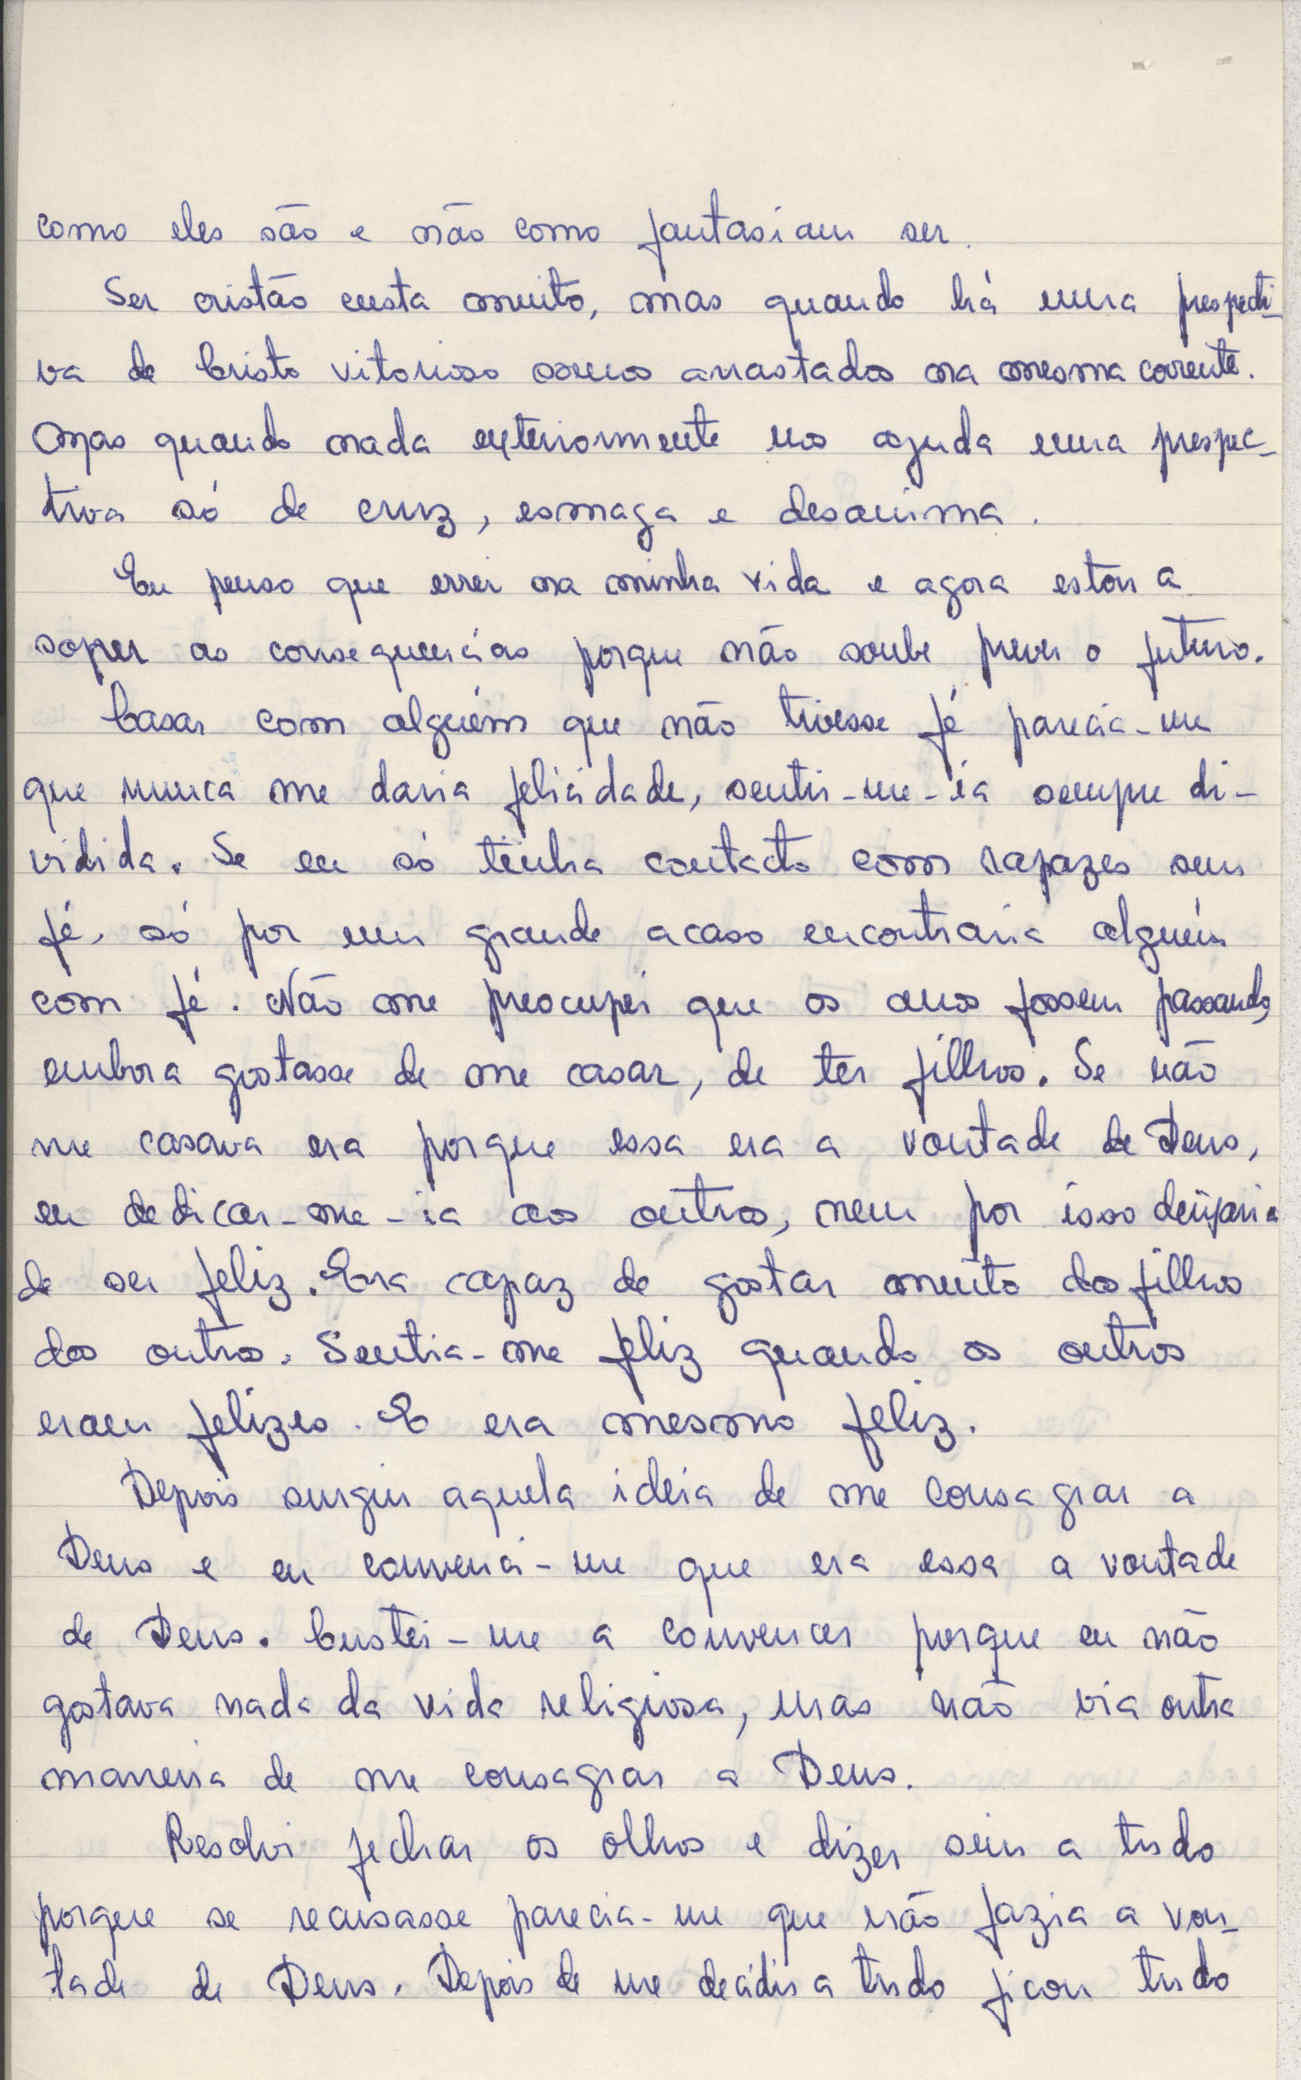 como eles são e não como fantasiam ser.
Ser cristão custa muito, mas quando há uma prespecti-
va de Cristo vitorioso somos arrastados na mesma corrente.
Mas quando nada exteriormente nos ajuda uma prespec-
tiva só de cruz, esmaga e desanima.
Eu penso que errei na minha vida e agora estou a
sofrer as consequências porque não soube prever o futuro.
Casar com alguém que não tivesse fé parecia-me
que nunca me daria felicidade, sentir-me-ia sempre di-
vidida. Se eu só tinha contacto com rapazes sem
fé, só por um grande acaso encontraria alguém
com fé. Não me preocupei que os anos fossem passando,
embora gostasse de me casar, de ter filhos. Se não
me casava era porque essa era a vontade de Deus,
eu dedicar-me-ia aos outros, nem por isso deixaria
de ser feliz. Era capaz de gostar muito dos filhos
dos outros. Sentia-me feliz quando os outros
eram felizes. E era mesmo feliz.
Depois surgiu aquela ideia de me consagrar a
Deus e eu convenci-me que era essa a vontade
de Deus. Custei-me a convencer porque eu não
gostava nada da vida religiosa, mas não via outra
maneira de me consagrar a Deus.
Resolvi fechar os olhos e dizer sim a tudo
porque se recusasse parecia-me que não fazia a von-
tade de Deus. Depois de me decidir a tudo ficou tudo